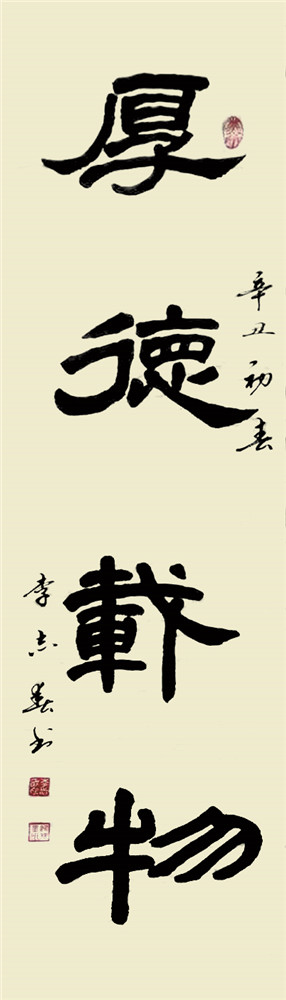 厚德載物
辛丑初春
李志春书